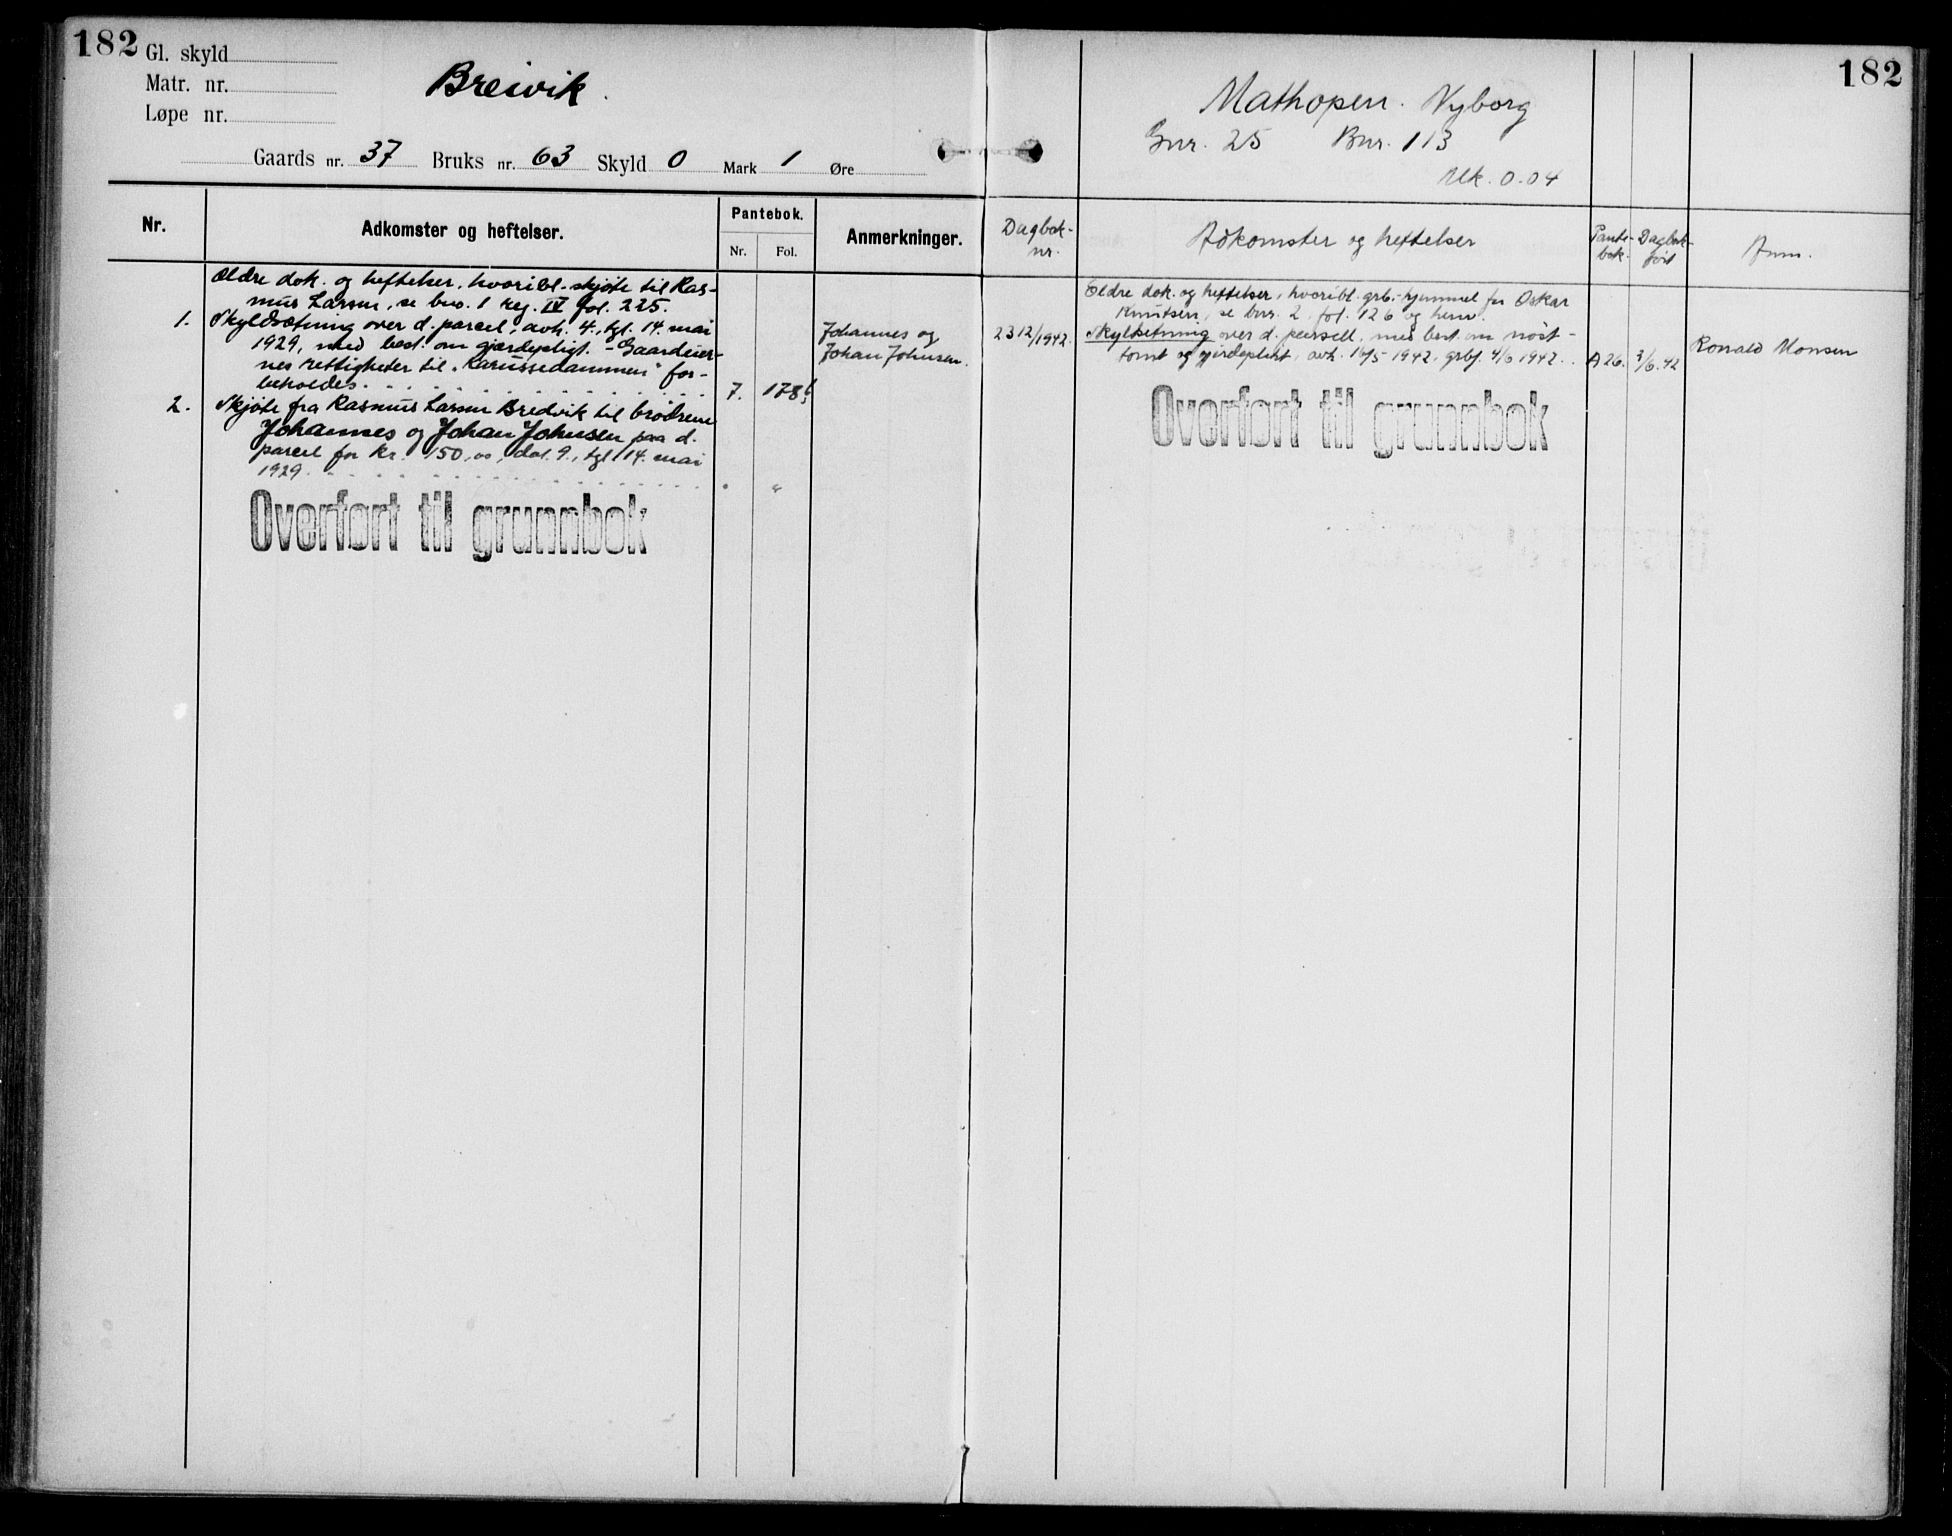 182
Gl. skyld
Matr. nr.
Løpe nr.
Breivik.
Gaards nr. 37 Bruks nr. 63 Skyld 0 Mark 1 Øre
Nr.
Adkomster og heftelser.
Pantebok.
Nr. Fol.
Anmerkninger.
Ældre dok. og heftelser, hvoribl. skjøte til Ras-
mus Larsen, se bno. 1 reg. IV fol. 225.
1. Skyldsætning over d. parcel, avh. 4., tgl. 14. mai
1929, med best. om gjærdepligt. - Gaardeier-
nes rettigheter til "Karussedammen" for-
beholdes. 7. 178
Johannes og
Johan Johnsen.
2. Skjøte fra Rasmus Larsen Bredvik til brødrene
Johannes og Johan Johnsen paa d.
parcel for kr. 150,00, dat. 9., tgl. 14. mai
1929. " "
Overført til grunnbok
182
Mathopen. Nyborg
Gnr. 25 Bnr. 113
Mk. 0.04
Dagbok-
nr.
Adkomster og heftelser
Pante-
bok.
Dagbok-
ført
Anm.
Eldre dok. og heftelser, hvoribl. grb. hjemmel for Oskar
Knutsen, se bnr. 2, fol. 126 og henv.
2312/1942. Skyldsetning over d. parsell, med best. om nøst-
tomt og gjerdeplikt, avh. 16/5 1942, grbf. 4/6 1942. A 26. 3/6.42
Ronald Monsen
Overført til grunnbok